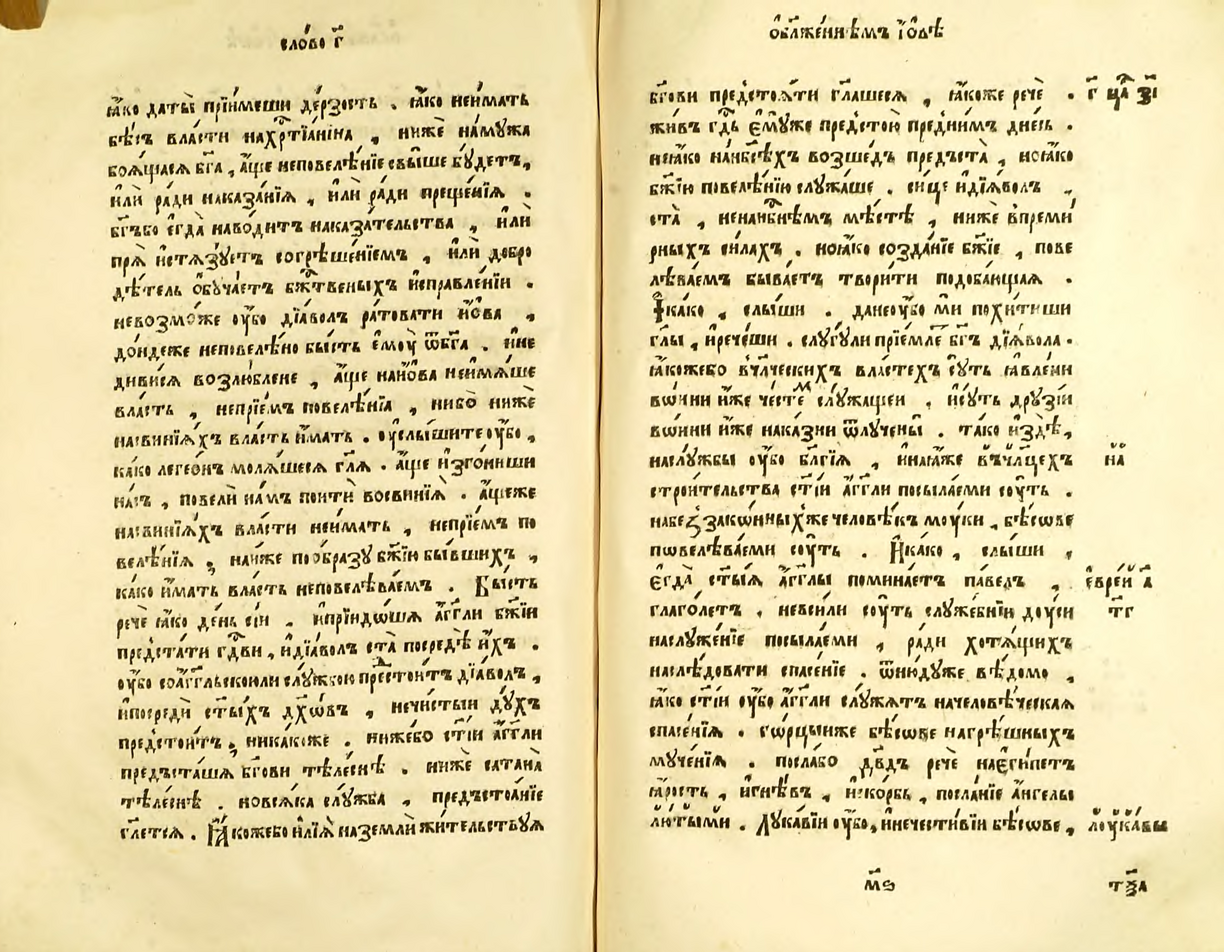 сло́во г҃
ꙗ҆́ко даты̀ прїи́меши де́рзость . ꙗ҆́ко неи́мать
бѣ́съ вла́сти нахр҇тїа́нїна , ниже на́мꙋжа
боѧ́щасѧ бг҃а , а҆́ще неповелѣ́нїе свы́ше бꙋ́детъ,
и҆лѝ ра́ди наказа́нїѧ , и҆лѝ ра́ди преще́нїѧ .
бг҃ъбо е҆гда̀ наво́дитъ наказа́телства , и҆лѝ
прѧ̀ и҆стѧзꙋ́етъ согрѣше́нїемъ , и҆лѝ добро
дѣ́тель ѻ҆бꙋча́етъ бж҇твеныхъ и҆справле́нїи .
невозмо́же ᲂу҆́бо дїа́волъ ра́товати и҆́ѡва ,
до́ндеже неповелѣ́но бы́сть е҆мꙋ̀ ѿбг҃а . и҆не
диви́сѧ возлю́блене , а҆́ще наи҆́ѡва неимѧ́ше
вла́сть , непрїе́мъ повелѣ́нїѧ , ни́бо ниже
насвинїѧ́хъ вла́сть и҆́мать . ᲂу҆слы́шите ᲂу҆́бо ,
ка́ко легео́нъ молѧ́шесѧ гл҃ѧ . а҆́ще и҆зго́ниши
на́съ , повелѝ на́мъ поитѝ восвинїѧ̀ . а҆́щеже
насвинїѧ́хъ вла́сти неи́мать , непрїе́мъ по
велѣ́нїѧ , наи́же по ѻ҆́бразꙋ бж҃їю бы́вшихъ ,
ка́ко и҆́мать вла́сть неповелѣва́емъ . Бы́сть
рече ꙗ҆́ко де́нь сїи . и҆прїидѡ́шѧ а҆́гг҃ли бж҃їи
предста́ти гд҇ви , и҆дїа́волъ ста̀ посредѣ̀ и҆́хъ .
ᲂу҆́бо соа҆́гг҃льскоили слꙋ́жкою пред҇стои́тъ дїа́волъ ,
и҆посредѝ ст҃ы́хъ дх҃ѡ́въ , нечи́стыи дꙋ́хъ
предстои́тъ , ника́коже . ни́жебо ст҃і́и а҆́гг҃ли
предъста́шѧ бг҃ови тѣле́снѣ . ниже сатана̀
тѣле́снѣ . новсѧ́ка слꙋ́жба , предъстоѧ́нїе
гл҃етсѧ . Ꙗ҆́кожебо и҆лїѧ̀ наземлѝ жи́тельствꙋѧ
ѻ҆блаже́ннѣмъ і҆́ѡвѣ
бг҃ови предстоѧ́ти глаше́сѧ , ꙗ҆́коже речѐ .
г҃ ца҇ з҃і
жи́въ гд҇ь є҆мꙋ́же предстою̀ предни́мъ дне́сь .
неꙗ҆́ко нанб҃сѣ́хъ возше́дъ предъста̀ , ноꙗ҆́ко
бж҃їю повелѣ́нїю слꙋжа́ше . си́це и҆дїѧ́волъ ,
ста̀ , ненанб҃нѣмъ мѣ́стѣ , ниже впреми́
рныхъ си́лахъ . ноꙗ҆́ко созда́нїе бж҃їе , пове
лѣва́емъ быва́етъ твори́ти подоба́ющаѧ .
І҆ка́ко , слы́ши . данеᲂу҆́бо мѝ похи́тиши
гл҃ы , и҆рече́ши . слꙋгꙋ́ли прїе́мле бг҃ъ дїѧ́вола .
ꙗ҆́кожебо вчл҃ческихъ власте́хъ сꙋ́ть ꙗ҆влѐни
вѡ́ини и҆́же че́стемъ слꙋ́жащеи , и҆сꙋ́ть дрꙋзі́и
вѡ́ини и҆́же наказни ѿлꙋче́ны . та́ко и҆здѣ̀,
наслꙋ́жбы ᲂу҆́бо бл҃гі́ѧ , и҆наꙗ҆́же въчл҃цехъ
на
строи́тельства ст҃і́и а҆́гг҃ли посыла́еми сꙋ́ть .
набеззако́нныхже человѣ́къ мꙋ́ки , бѣ́сѡве
пѡвелѣва́еми сꙋ́ть . И҆ка́ко , слы́ши ,
є҆гда̀ ст҃ы́ѧ а҆́гг҃лы помина́етъ па́велъ ,
є҆вре́и а҃
глаго́летъ , невси́ли сꙋ́ть слꙋже́бнїи дꙋ́си
т҃г
наслꙋже́нїе посыла́еми , ра́ди хотѧ́щихъ
наслѣ́довати спасе́нїе . ѿню́дꙋже вѣ́домо ,
ꙗ҆́ко ст҃і́и ᲂу҆́бо а҆́гг҃ли слꙋ́жатъ начеловѣ́ческаѧ
спасе́нїѧ . гѡ́рцыиже бѣ́сѡве нагрѣ́шныхъ
мꙋче́нїѧ . посла́бо дв҃дъ рече нає҆ги́петъ
ꙗ҆́рость , и҆гнѣ́въ , и҆ско́рбь , посла́нїе а҆́нгелы
лю́тыми . Лꙋка́вїи ᲂу҆́бо, и҆нечести́вїи бѣ́сѡве ,
лꙋка́вы
м҃ѕ
тз҃а